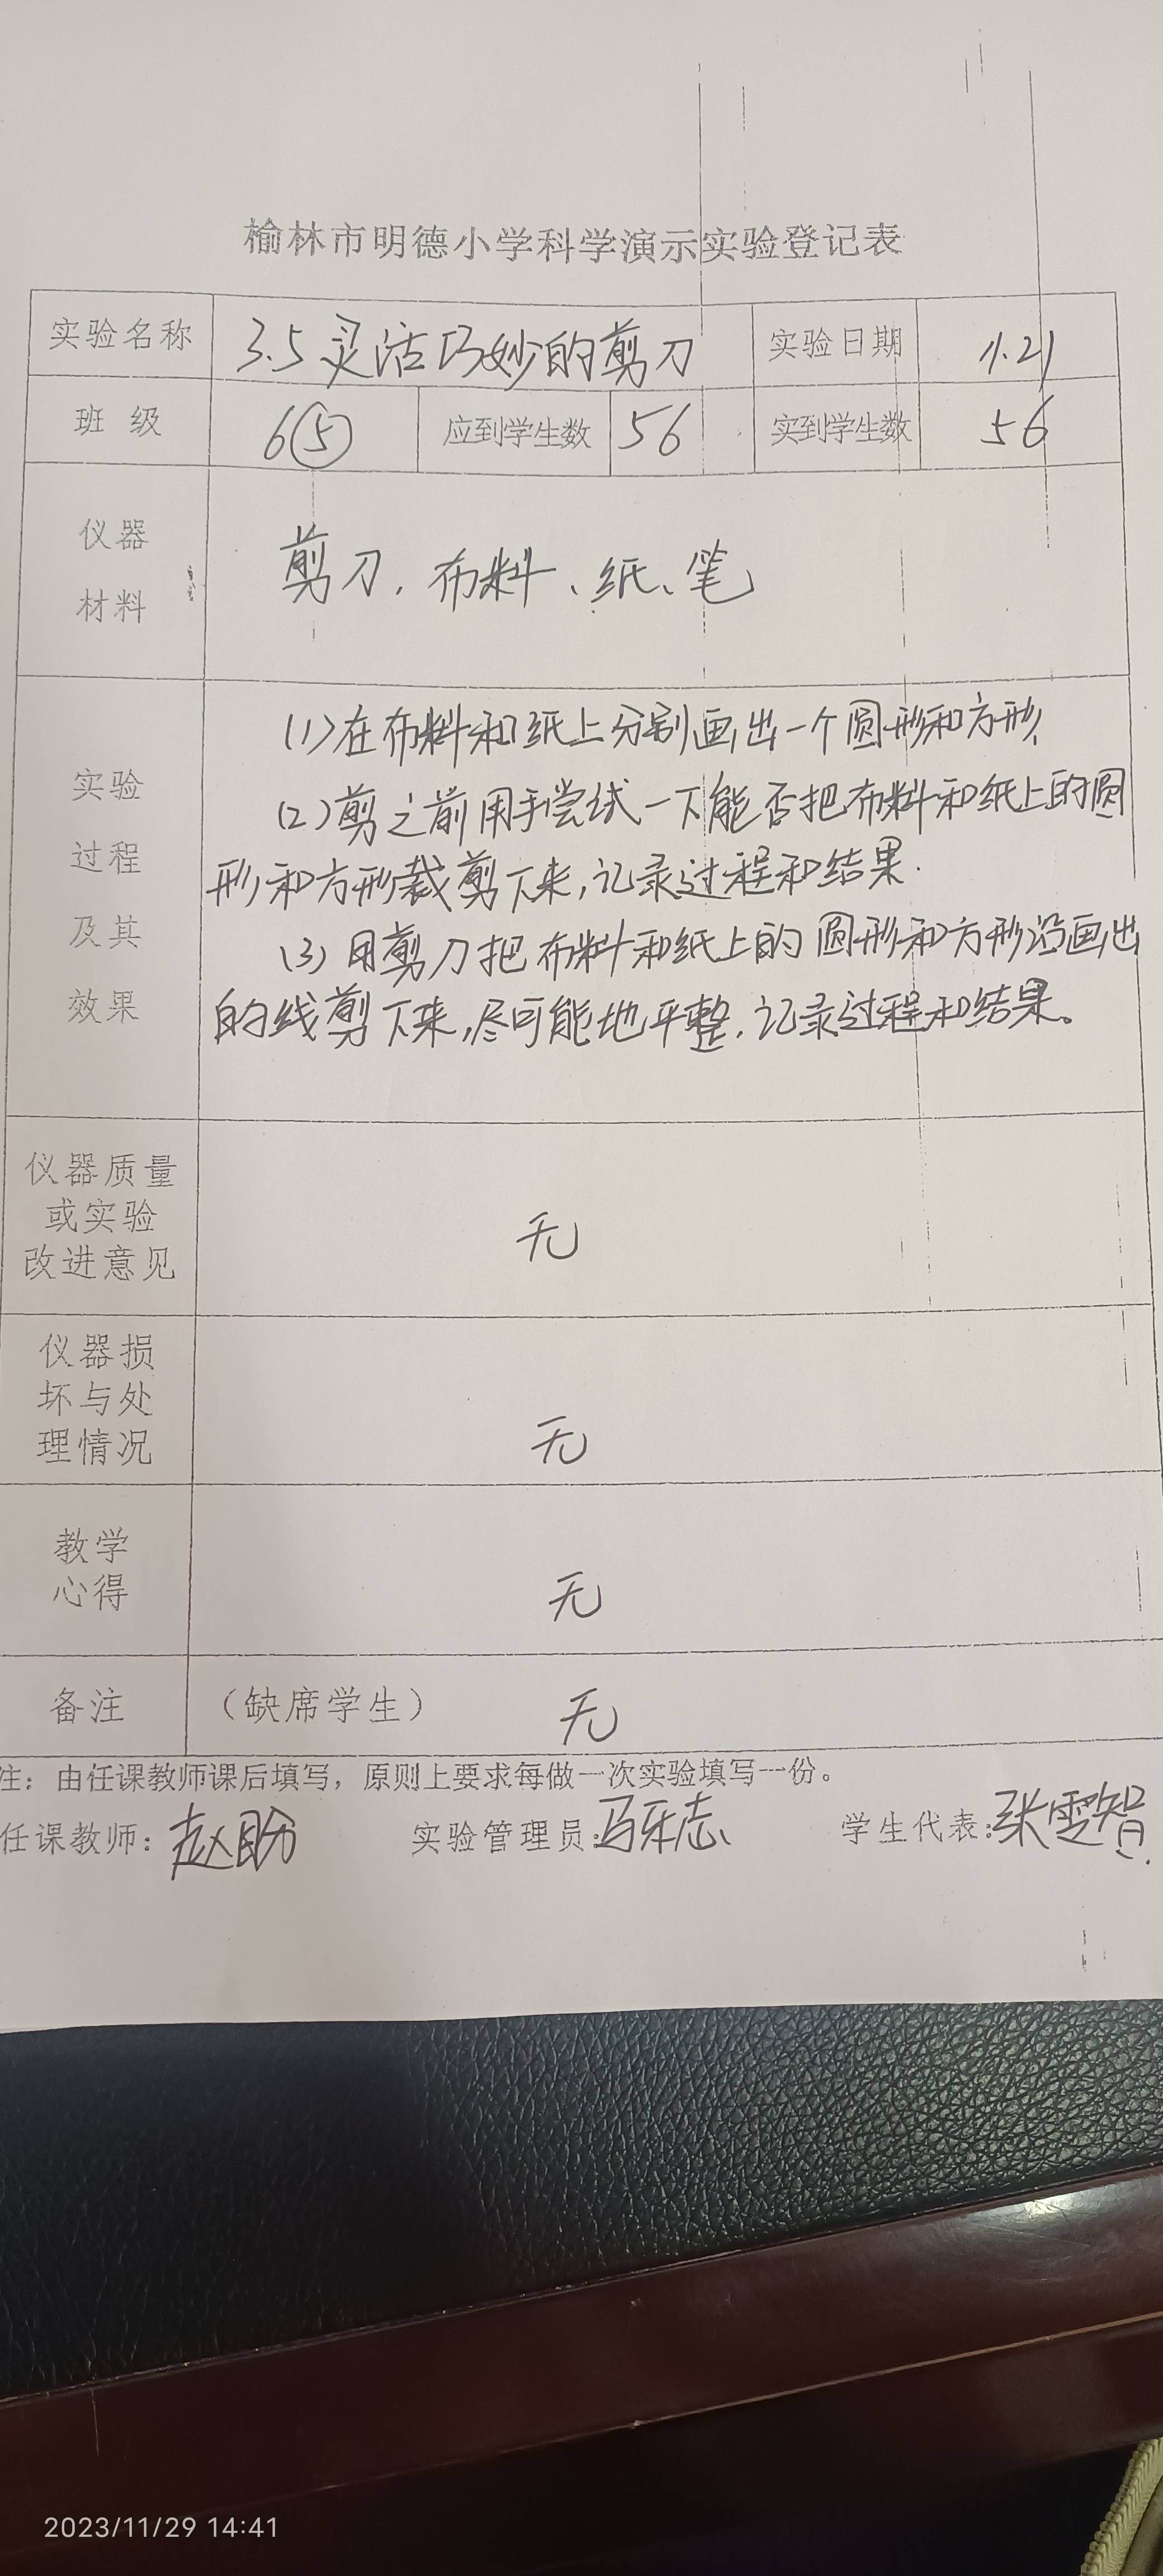 榆林市明德小学科学演示实验登记表
实验名称 3.5灵活巧妙的剪刀 实验日期 11.21
班 级 6⑤ 应到学生数 56 实到学生数 56
仪器
材料
剪刀、布料、纸、笔
实验
过程
及其
效果
(1)在布料和纸上分别画出一个圆形和方形.
(2)剪之前用手尝试一下能否把布料和纸上的圆
形和方形裁剪下来,记录过程和结果.
(3)用剪刀把布料和纸上的圆形和方形沿画出
的线剪下来,尽可能地平整.记录过程和结果。
仪器质量
或实验
改进意见
无
仪器损
坏与处
理情况
无
教学
心得
无
备注 (缺席学生) 无
注：由任课教师课后填写，原则上要求每做一次实验填写一份。
任课教师：赵盼 实验管理员: 学生代表:张雯智
2023/11/29 14:41